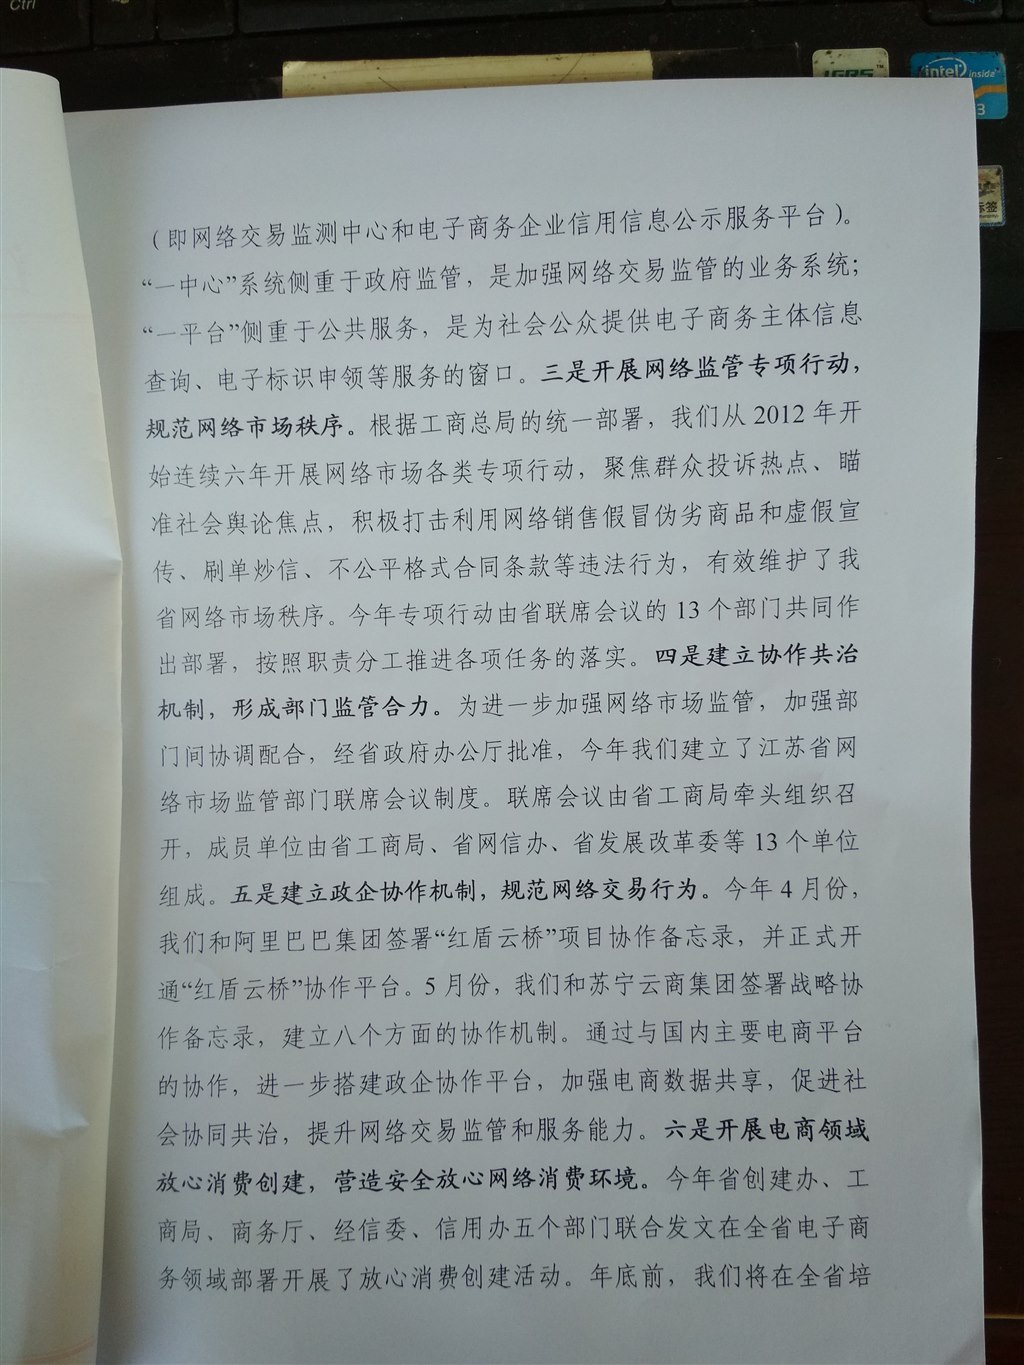 Ctrl
intel inside
3
标签
（即网络交易监测中心和电子商务企业信用信息公示服务平台）。
“一中心”系统侧重于政府监管，是加强网络交易监管的业务系统；
“一平台”侧重于公共服务，是为社会公众提供电子商务主体信息
查询、电子标识申领等服务的窗口。三是开展网络监管专项行动，
规范网络市场秩序。根据工商总局的统一部署，我们从 2012 年开
始连续六年开展网络市场各类专项行动，聚焦群众投诉热点、瞄
准社会舆论焦点，积极打击利用网络销售假冒伪劣商品和虚假宣
传、刷单炒信、不公平格式合同条款等违法行为，有效维护了我
省网络市场秩序。今年专项行动由省联席会议的 13 个部门共同作
出部署，按照职责分工推进各项任务的落实。四是建立协作共治
机制，形成部门监管合力。为进一步加强网络市场监管，加强部
门间协调配合，经省政府办公厅批准，今年我们建立了江苏省网
络市场监管部门联席会议制度。联席会议由省工商局牵头组织召
开，成员单位由省工商局、省网信办、省发展改革委等 13 个单位
组成。五是建立政企协作机制，规范网络交易行为。今年 4 月份，
我们和阿里巴巴集团签署“红盾云桥”项目协作备忘录，并正式开
通“红盾云桥”协作平台。5 月份，我们和苏宁云商集团签署战略协
作备忘录，建立八个方面的协作机制。通过与国内主要电商平台
的协作，进一步搭建政企协作平台，加强电商数据共享，促进社
会协同共治，提升网络交易监管和服务能力。六是开展电商领域
放心消费创建，营造安全放心网络消费环境。今年省创建办、工
商局、商务厅、经信委、信用办五个部门联合发文在全省电子商
务领域部署开展了放心消费创建活动。年底前，我们将在全省培